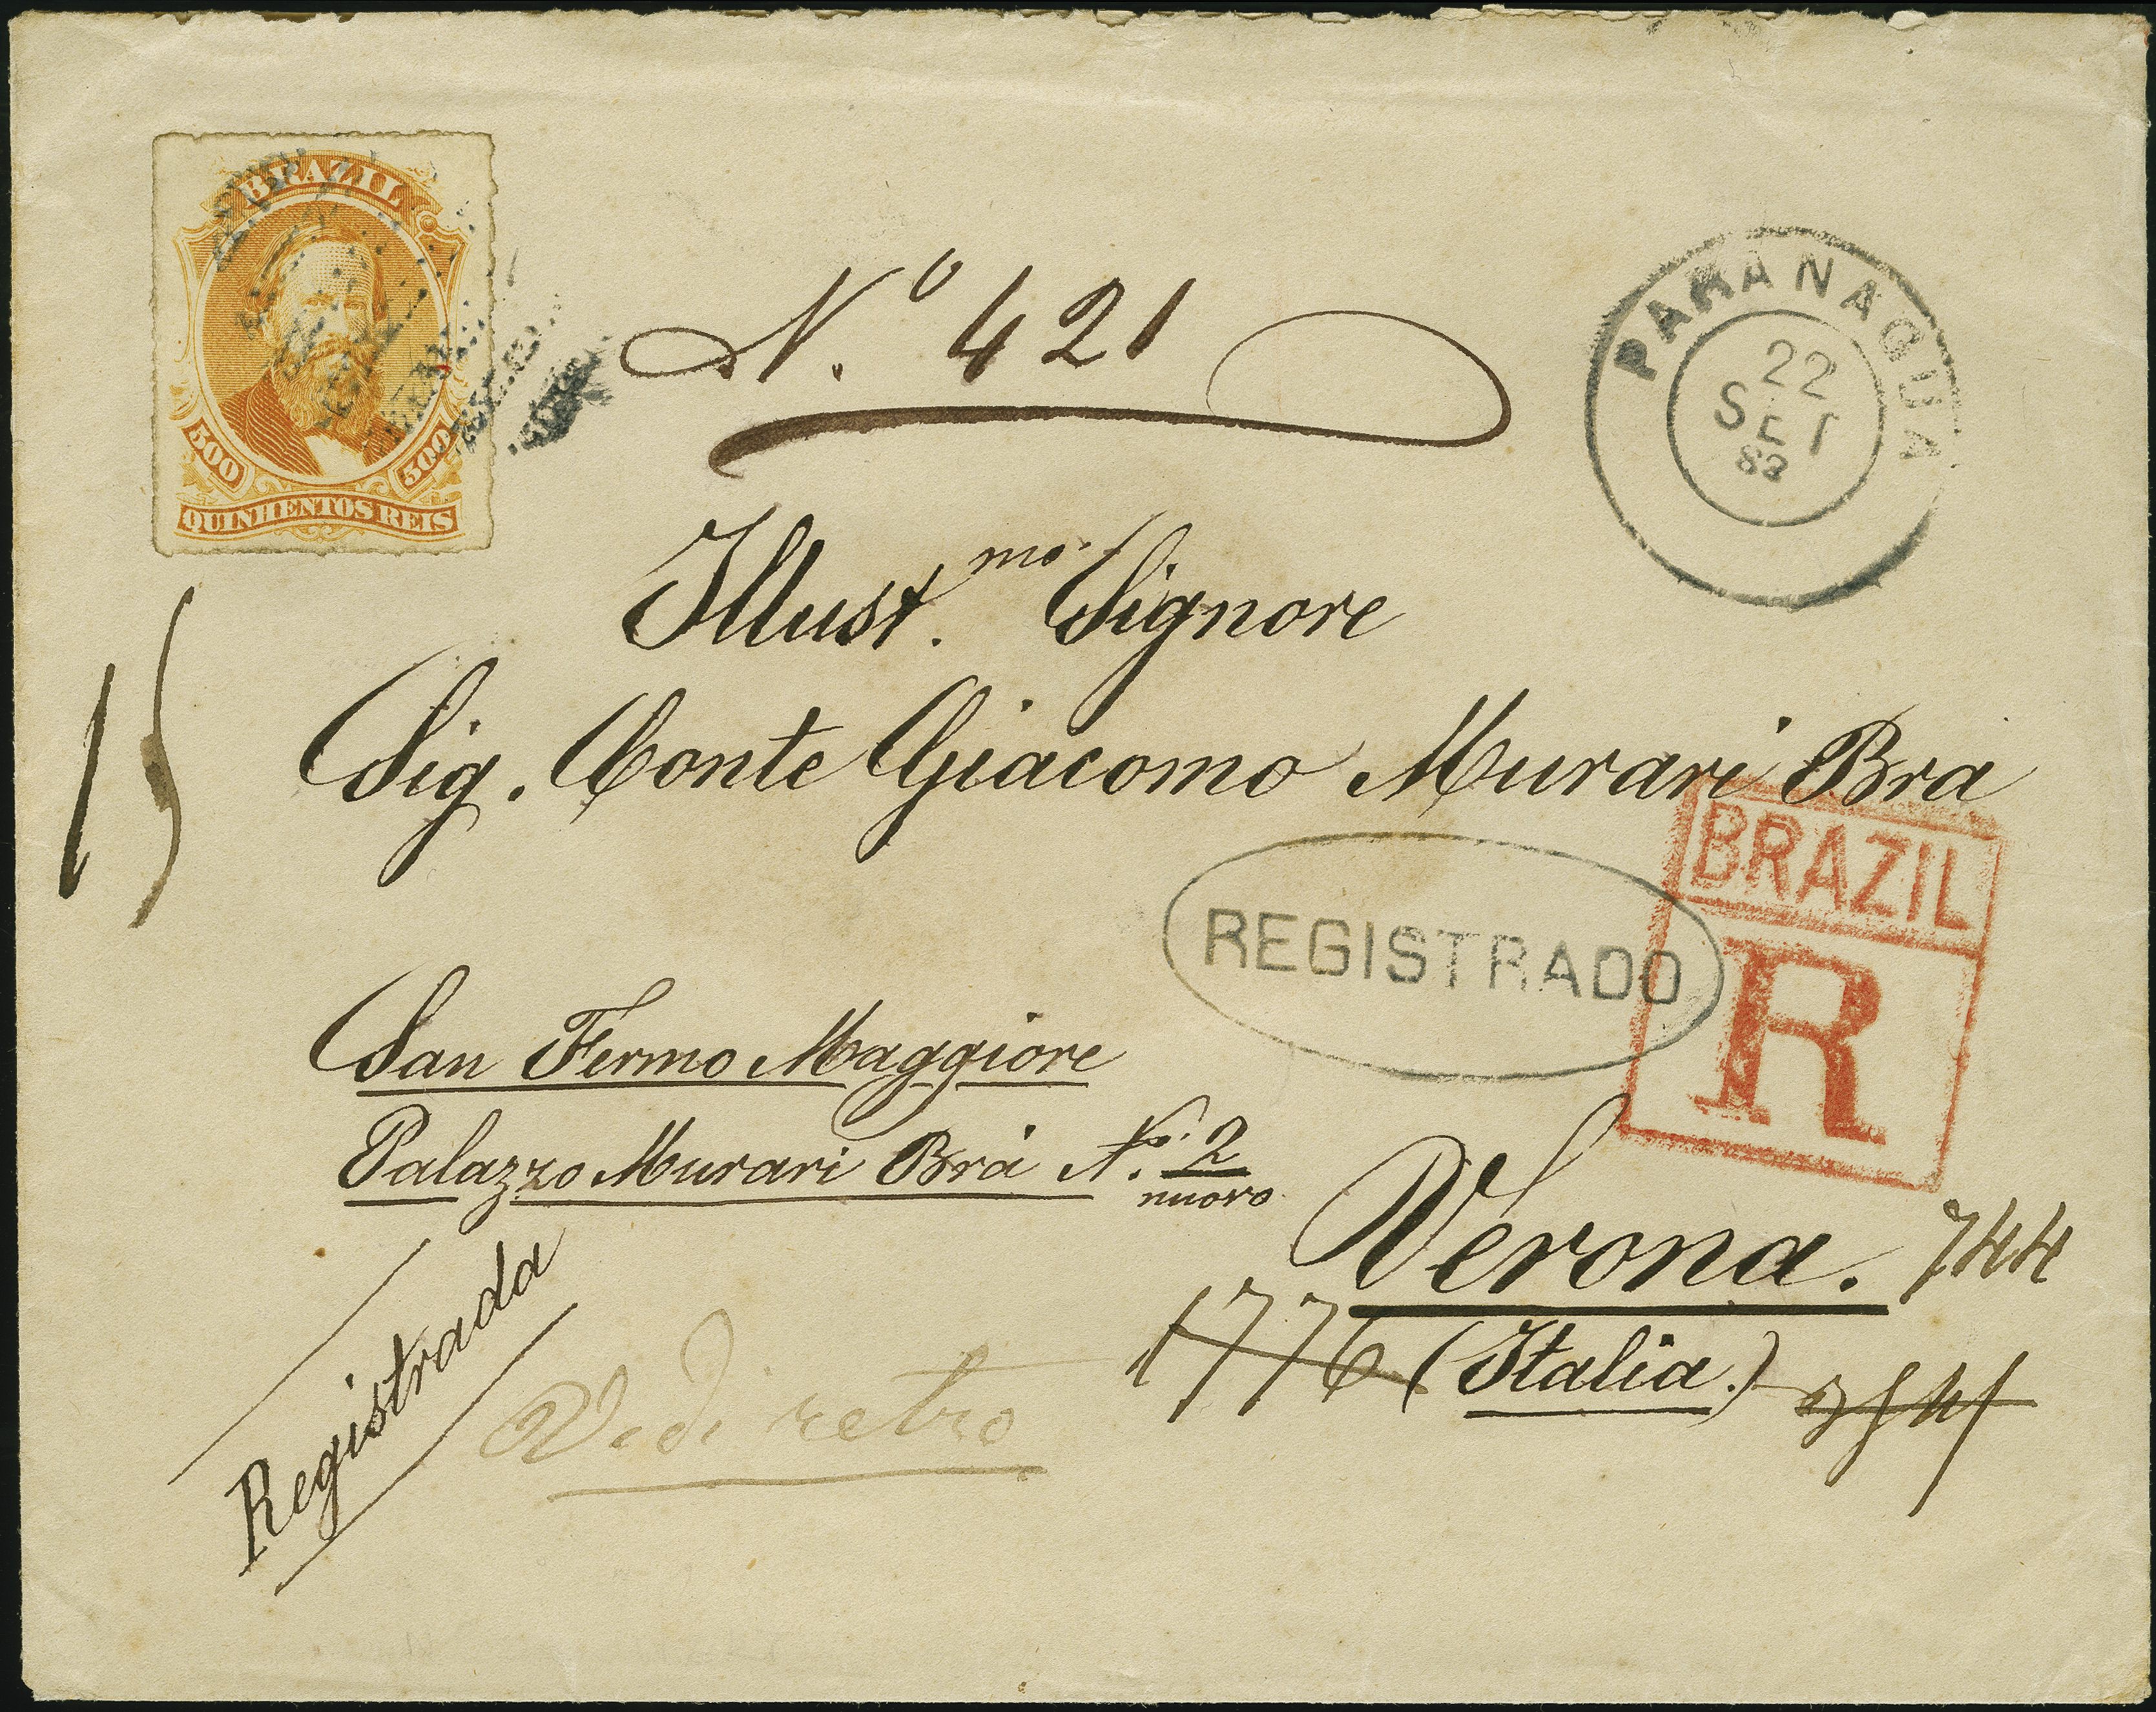 BRAZIL
500 500
QUINHENTOS REIS
No. 421
PARANAGUA
22
SET
Illust.mo Signore
Sig. Conte Giacomo Murari Bra
15
BRAZIL
R
REGISTRADO
San Fermo Maggiore
Palazzo Murari Brà No. 2
nuovo
Verona. 744
1776 (Italia.)
Registrada
Vedi retro